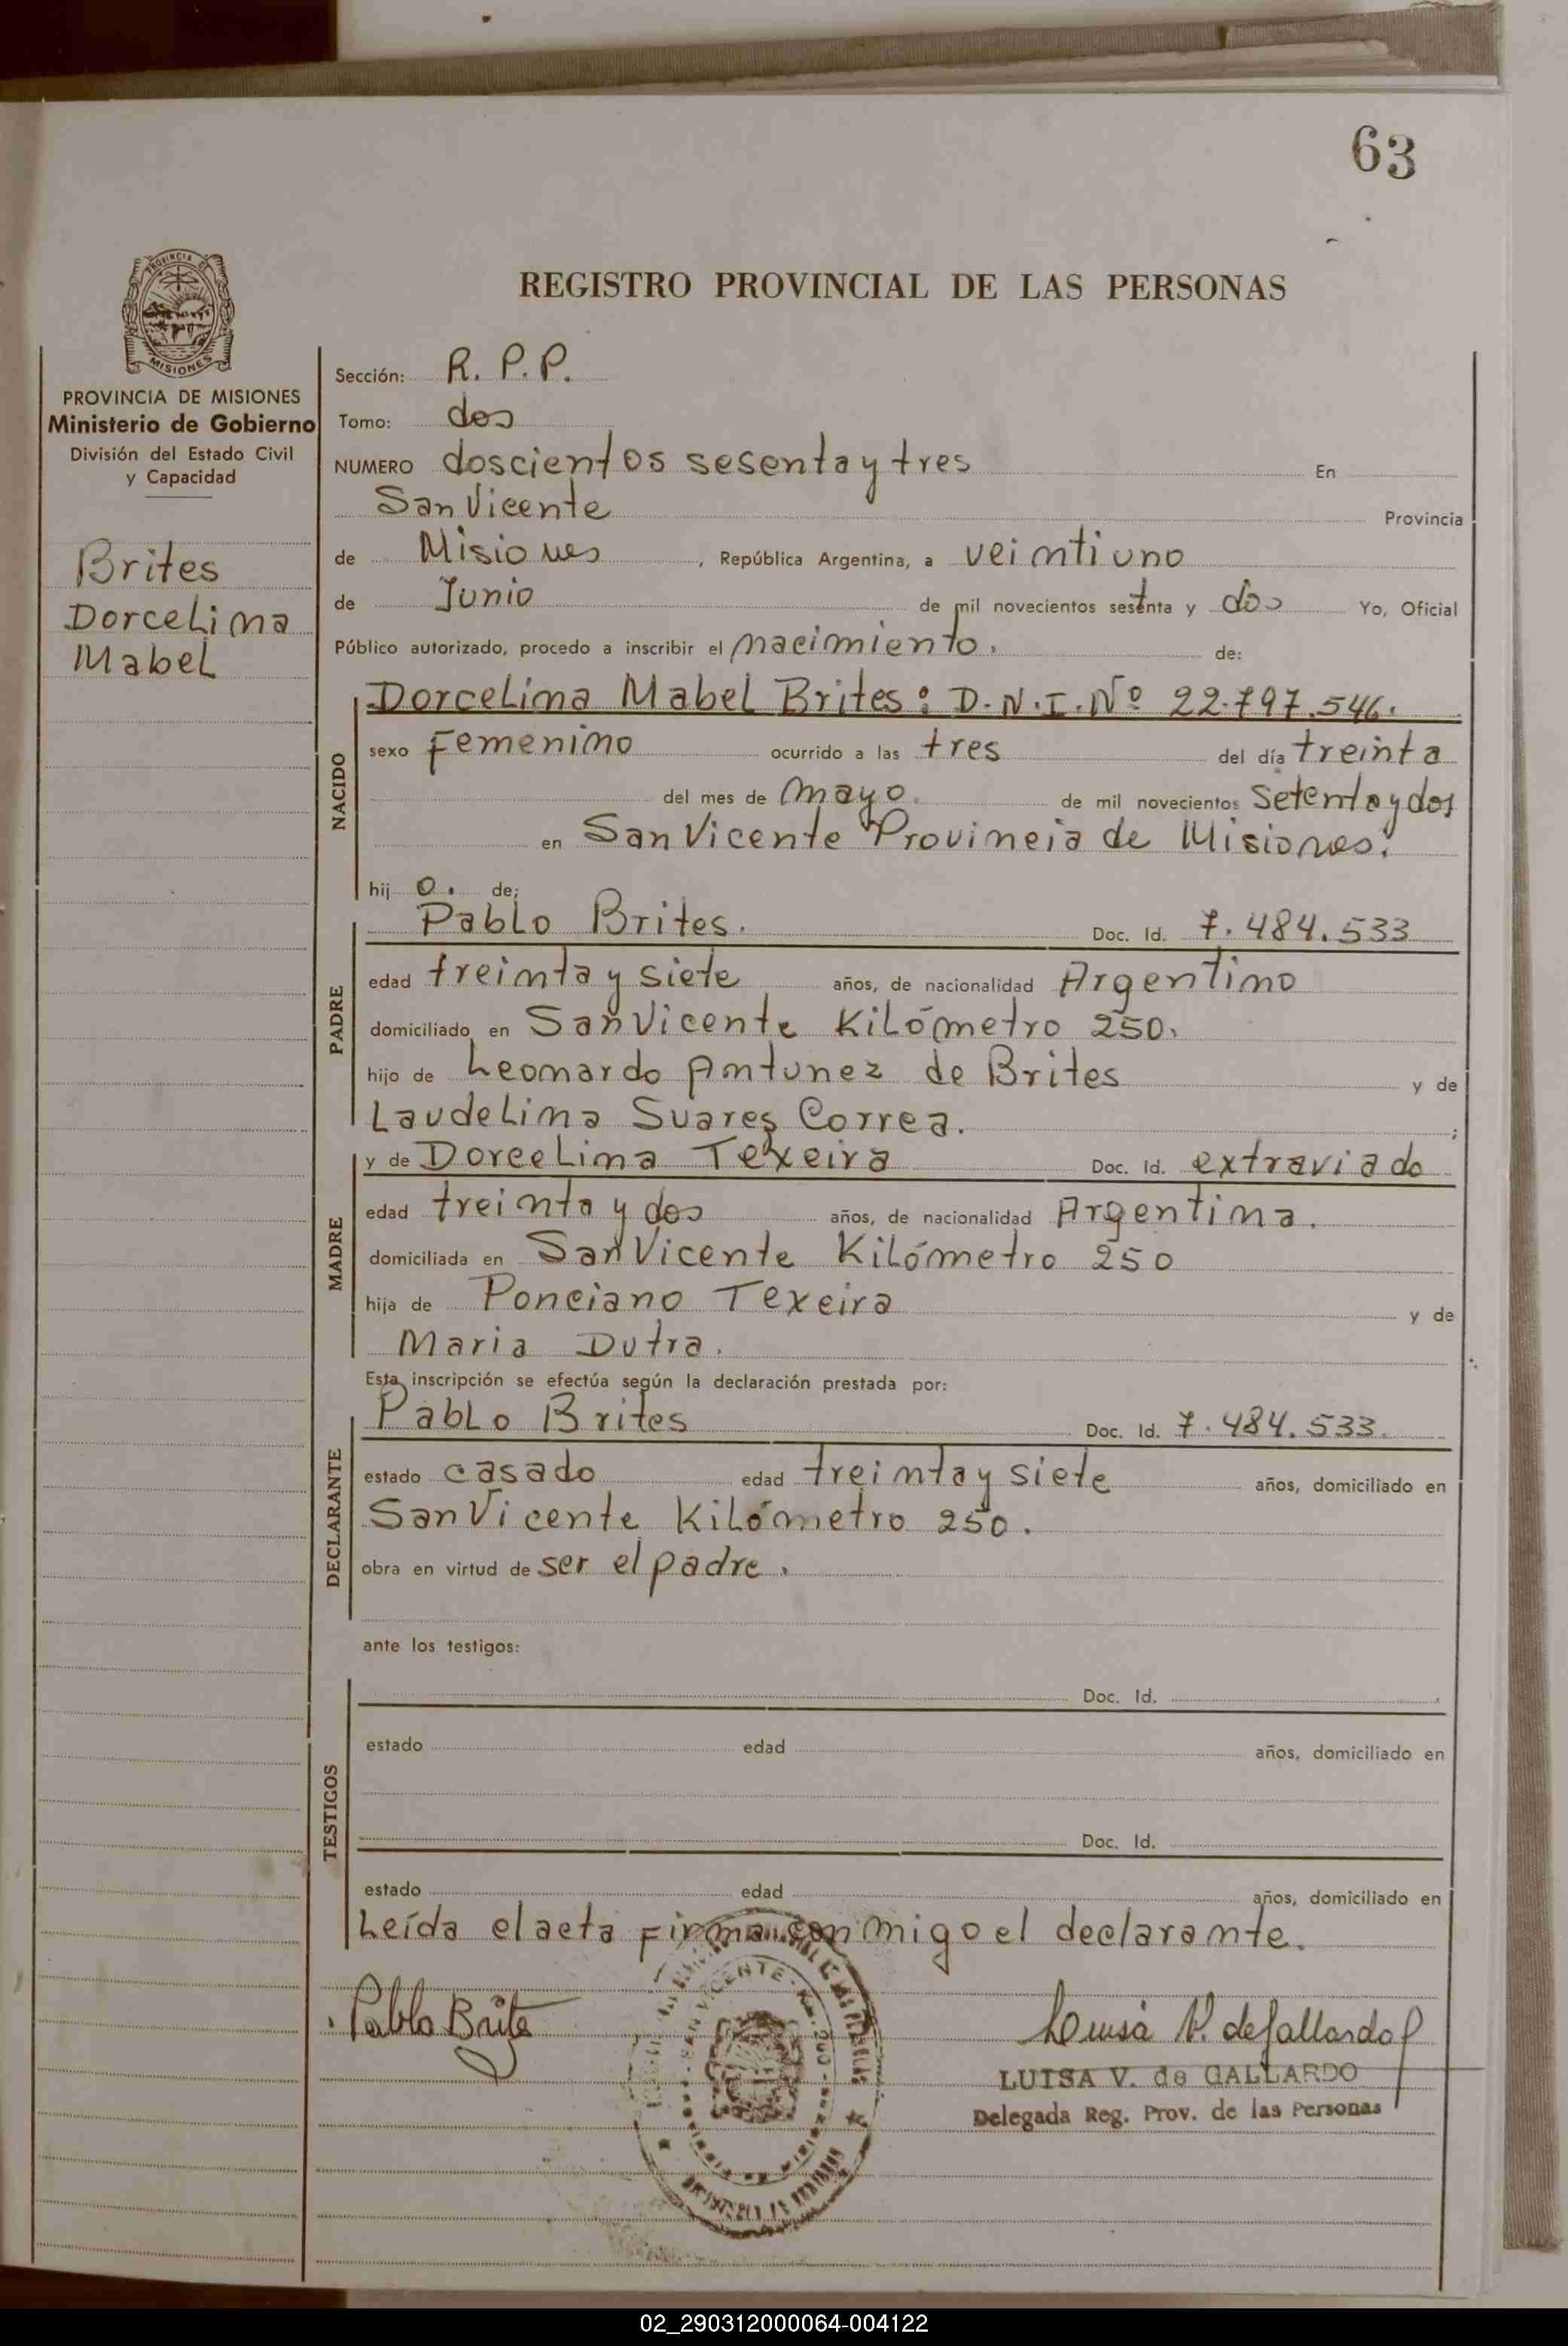 63
REGISTRO PROVINCIAL DE LAS PERSONAS
MISIONES
PROVINCIA DE MISIONES
Ministerio de Gobierno
División del Estado Civil
y Capacidad
Brites
Dorcelina
Mabel
Sección: R. P. P.
Tomo: dos
NUMERO doscientos sesenta y tres En
San Vicente Provincia
de Misiones, República Argentina, a veintiuno
de Junio de mil novecientos setenta y dos Yo, Oficial
Público autorizado, procedo a inscribir el nacimiento. de:
NACIDO
Dorcelina Mabel Brites: D.N.I. Nº 22.797.546.
sexo Femenino ocurrido a las tres del día treinta
del mes de mayo. de mil novecientos setenta y dos
en San Vicente Provincia de Misiones.
hij o. de;
PADRE
Pablo Brites. Doc. Id. 7.484.533
edad treinta y siete años, de nacionalidad Argentino
domiciliado en San Vicente Kilómetro 250.
hijo de Leonardo Antunez de Brites y de
Laudelina Suares Correa. ;
MADRE
y de Dorcelina Texeira Doc. Id. extraviado
edad treinta y dos años, de nacionalidad Argentina.
domiciliada en San Vicente Kilómetro 250
hija de Ponciano Texeira y de
Maria Dutra.
Esta inscripción se efectúa según la declaración prestada por:
DECLARANTE
Pablo Brites Doc. Id. 7.484.533.
estado casado edad treinta y siete años, domiciliado en
San Vicente Kilómetro 250.
obra en virtud de ser el padre.
ante los testigos:
TESTIGOS
Doc. Id.
estado edad años, domiciliado en
Doc. Id.
estado edad años, domiciliado en
Leída el acta firma conmigo el declarante.
Pablo Brites
Luisa V. de Gallardo
LUISA V. de GALLARDO
Delegada Reg. Prov. de las Personas
02_290312000064-004122